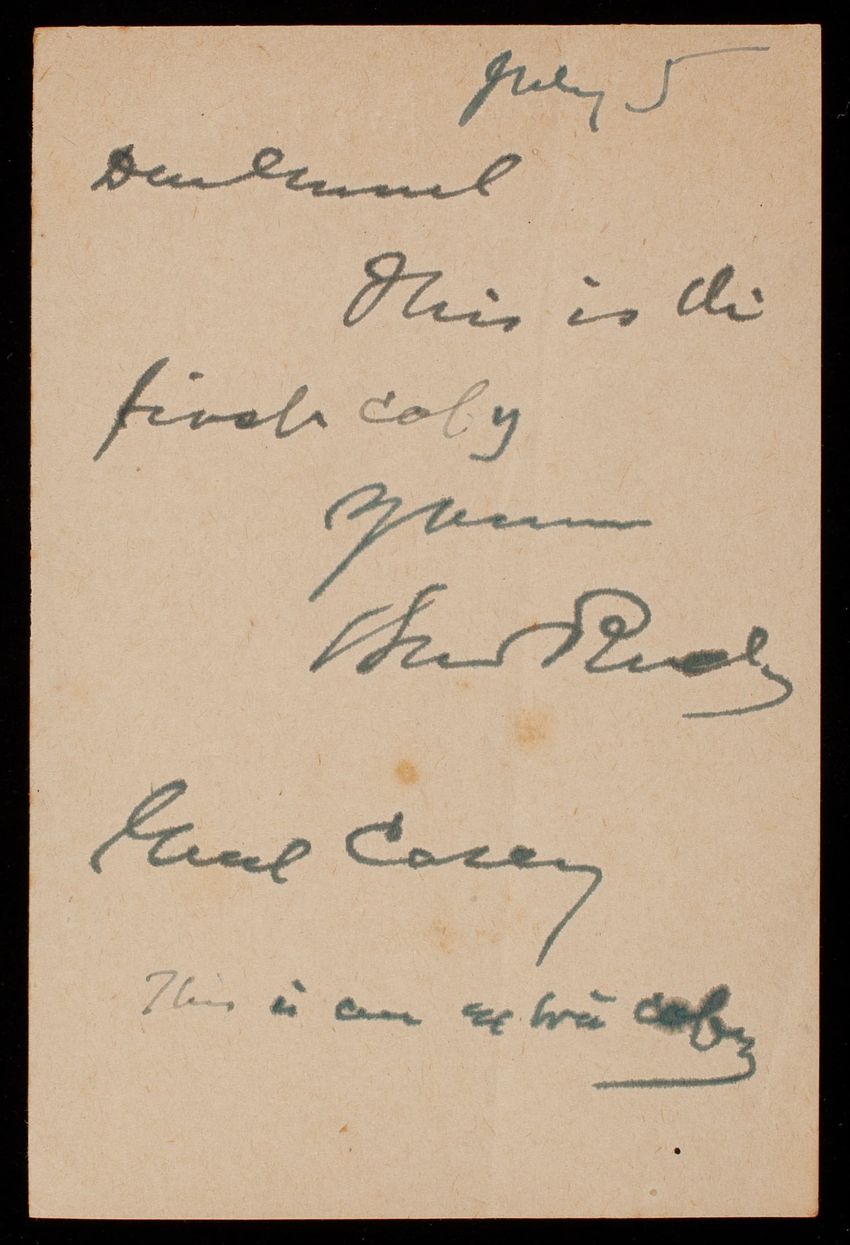 July 5
Dear Genl
This is the
first copy
Yours
Genl Casey
This is an extra copy